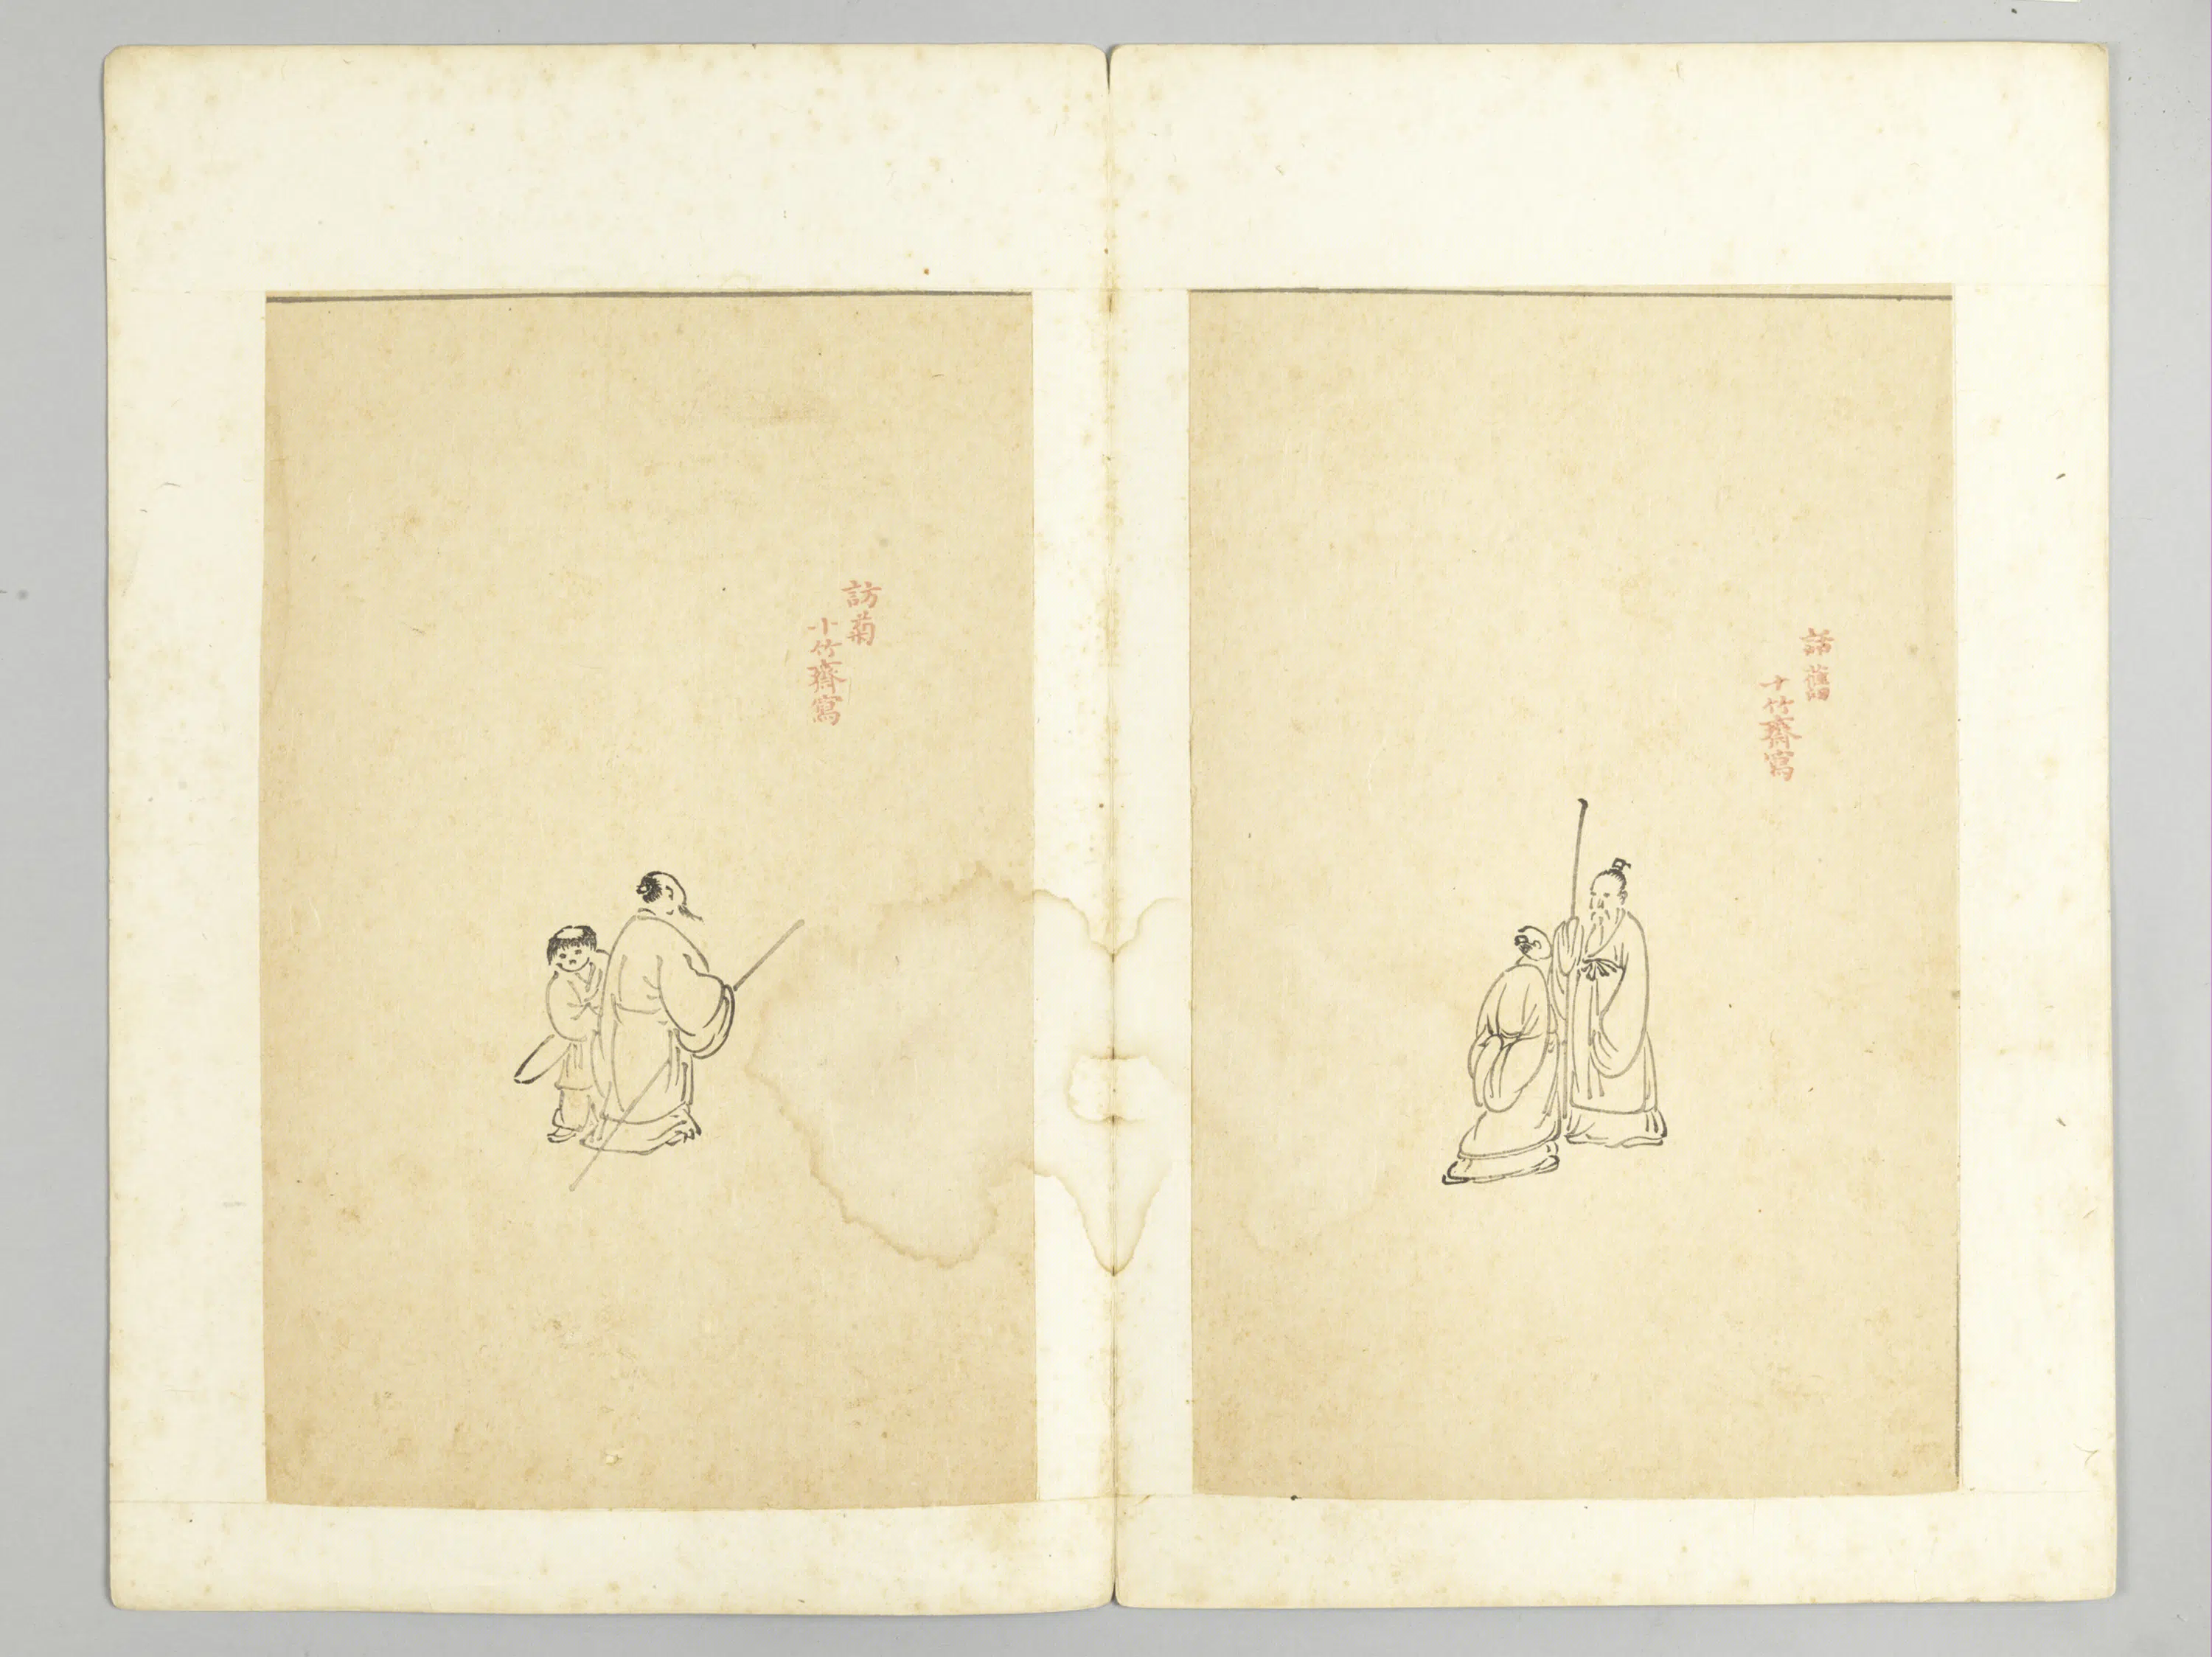 話舊
十竹齋寫
訪菊
十竹齋寫